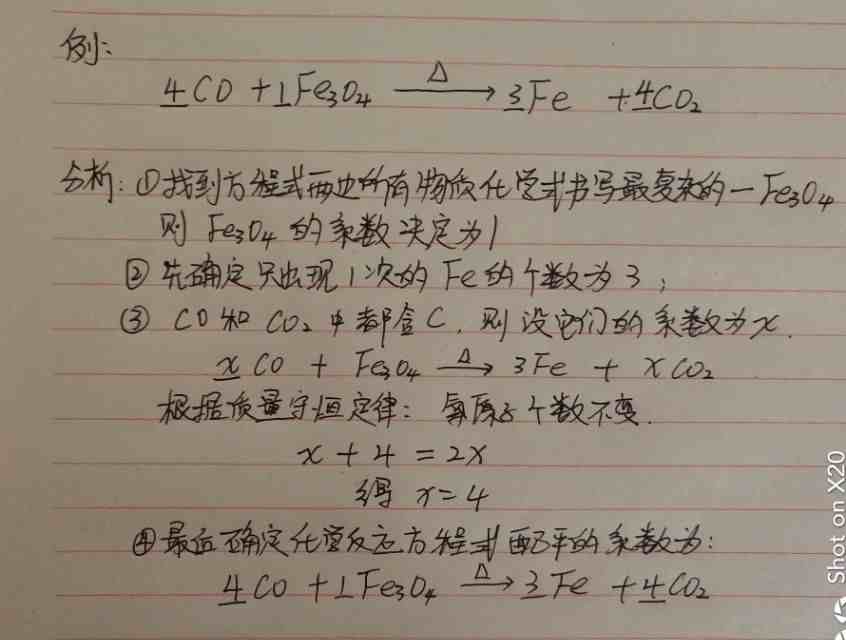 例:
4CO + 1Fe₃O₄ —Δ→ 3Fe + 4CO₂
分析: ①找到方程式两边所有物质化学式书写最复杂的一Fe₃O₄
则 Fe₃O₄ 的系数决定为1
② 先确定只出现1次的 Fe的个数为3;
③ CO和 CO₂ 中都含C, 则设它们的系数为x.
xCO + Fe₃O₄ —Δ→ 3Fe + xCO₂
根据质量守恒定律: 氧原子个数不变.
x + 4 = 2x
得 x = 4
④最后确定化学反应方程式配平的系数为:
4CO + 1Fe₃O₄ —Δ→ 3Fe + 4CO₂
Shot on X20